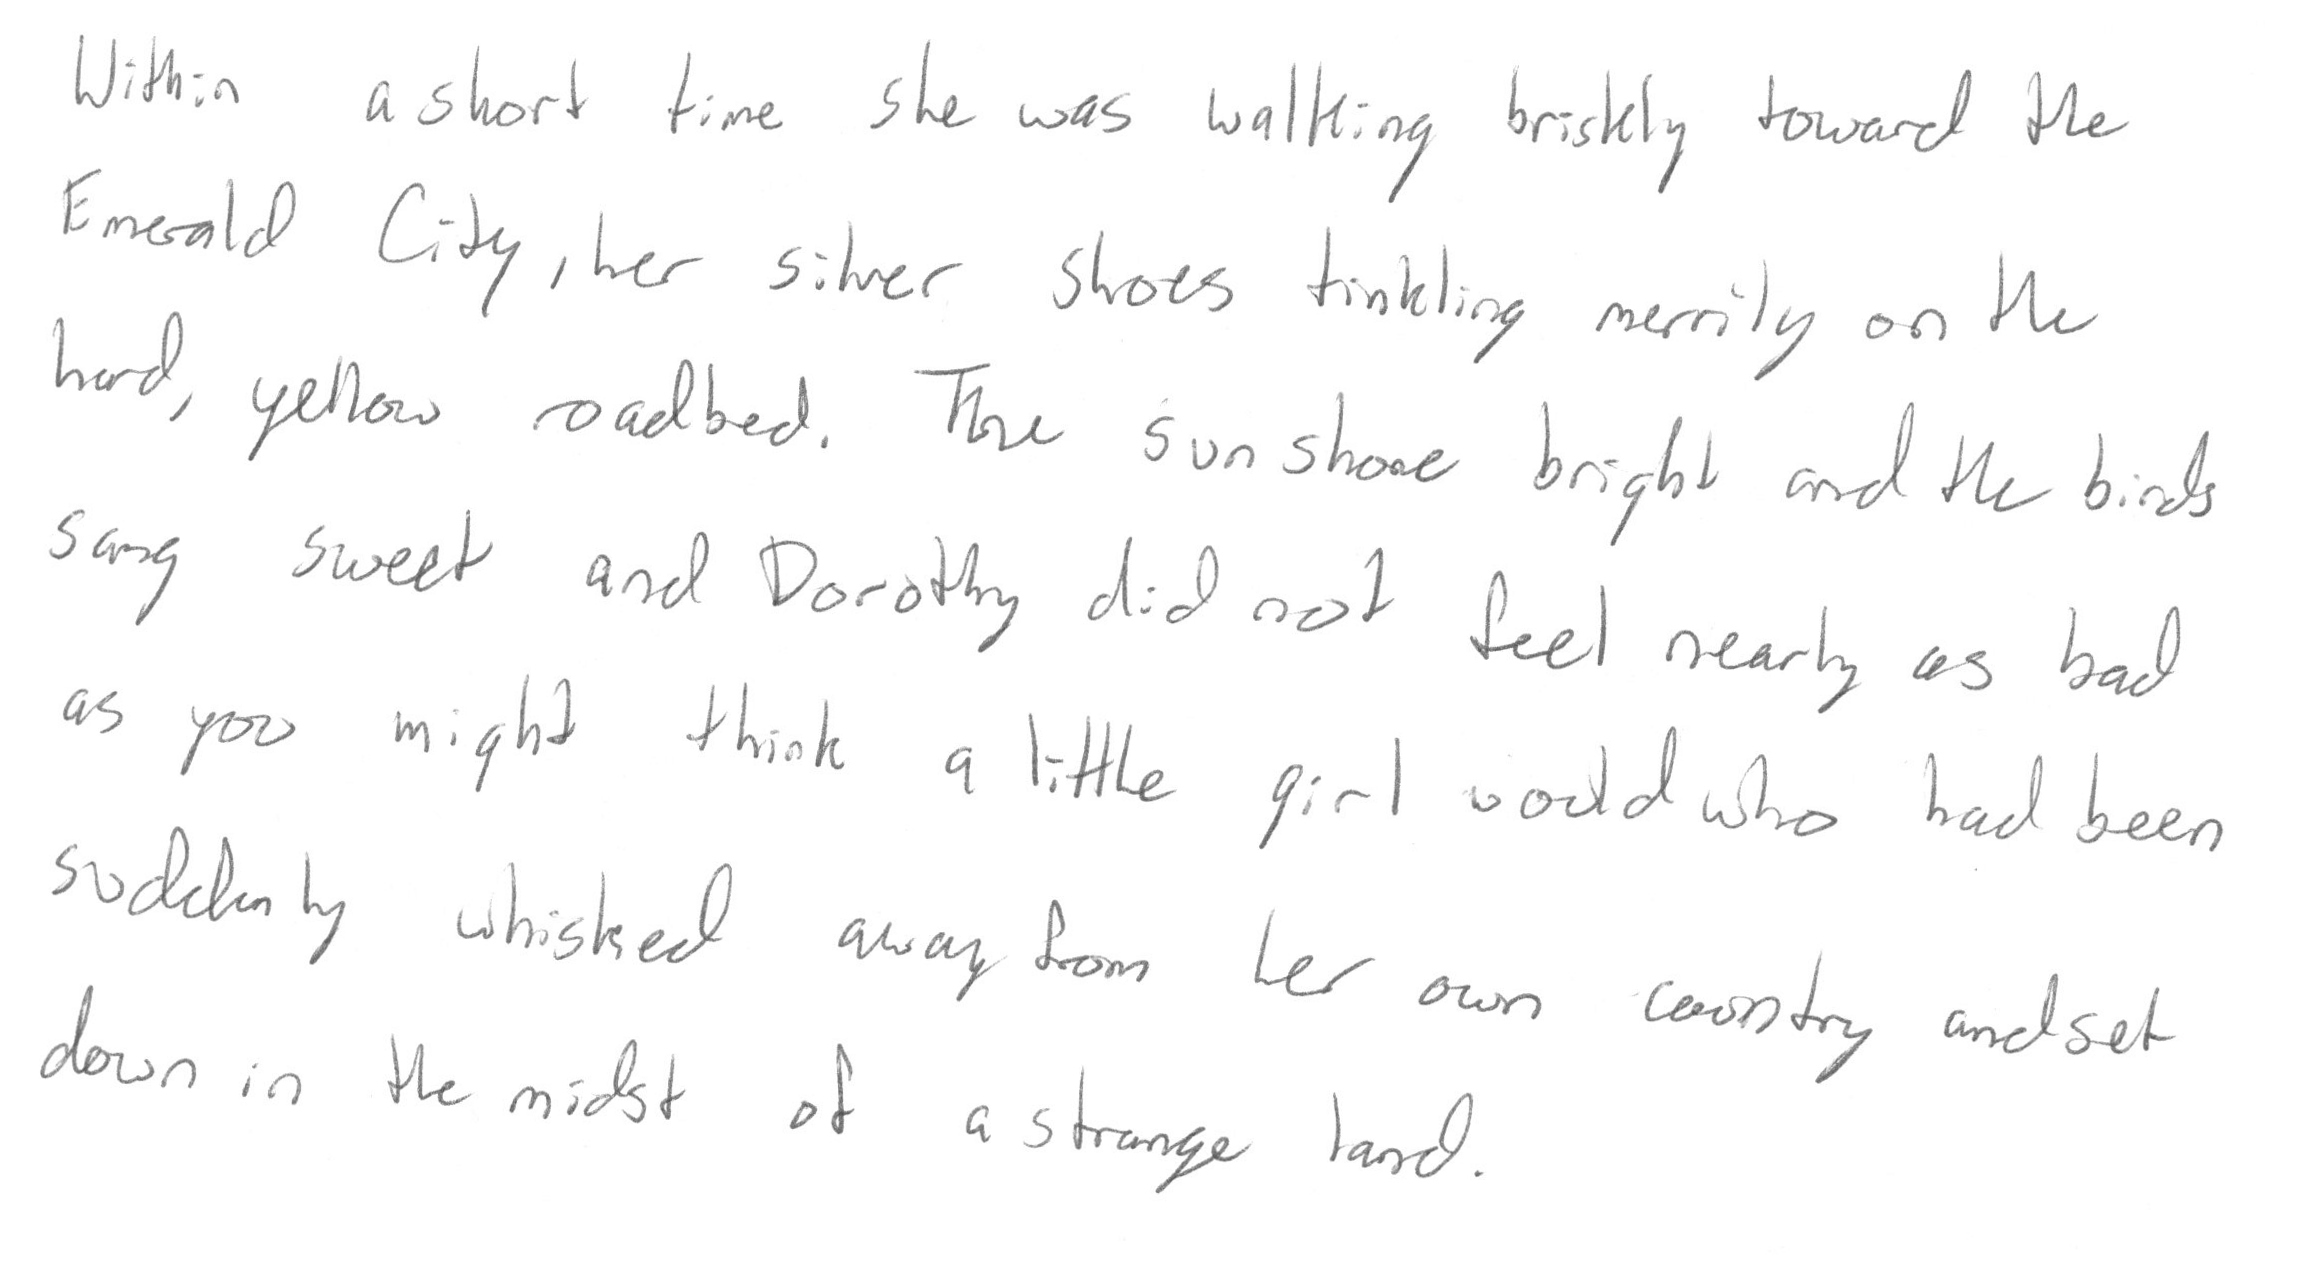 Within a short time she was walking briskly toward the
Emerald City, her silver shoes tinkling merrily on the
hard, yellow roadbed. The sun shone bright and the birds
sang sweet and Dorothy did not feel nearly as bad
as you might think a little girl would who had been
suddenly whisked away from her own country and set
down in the midst of a strange land.